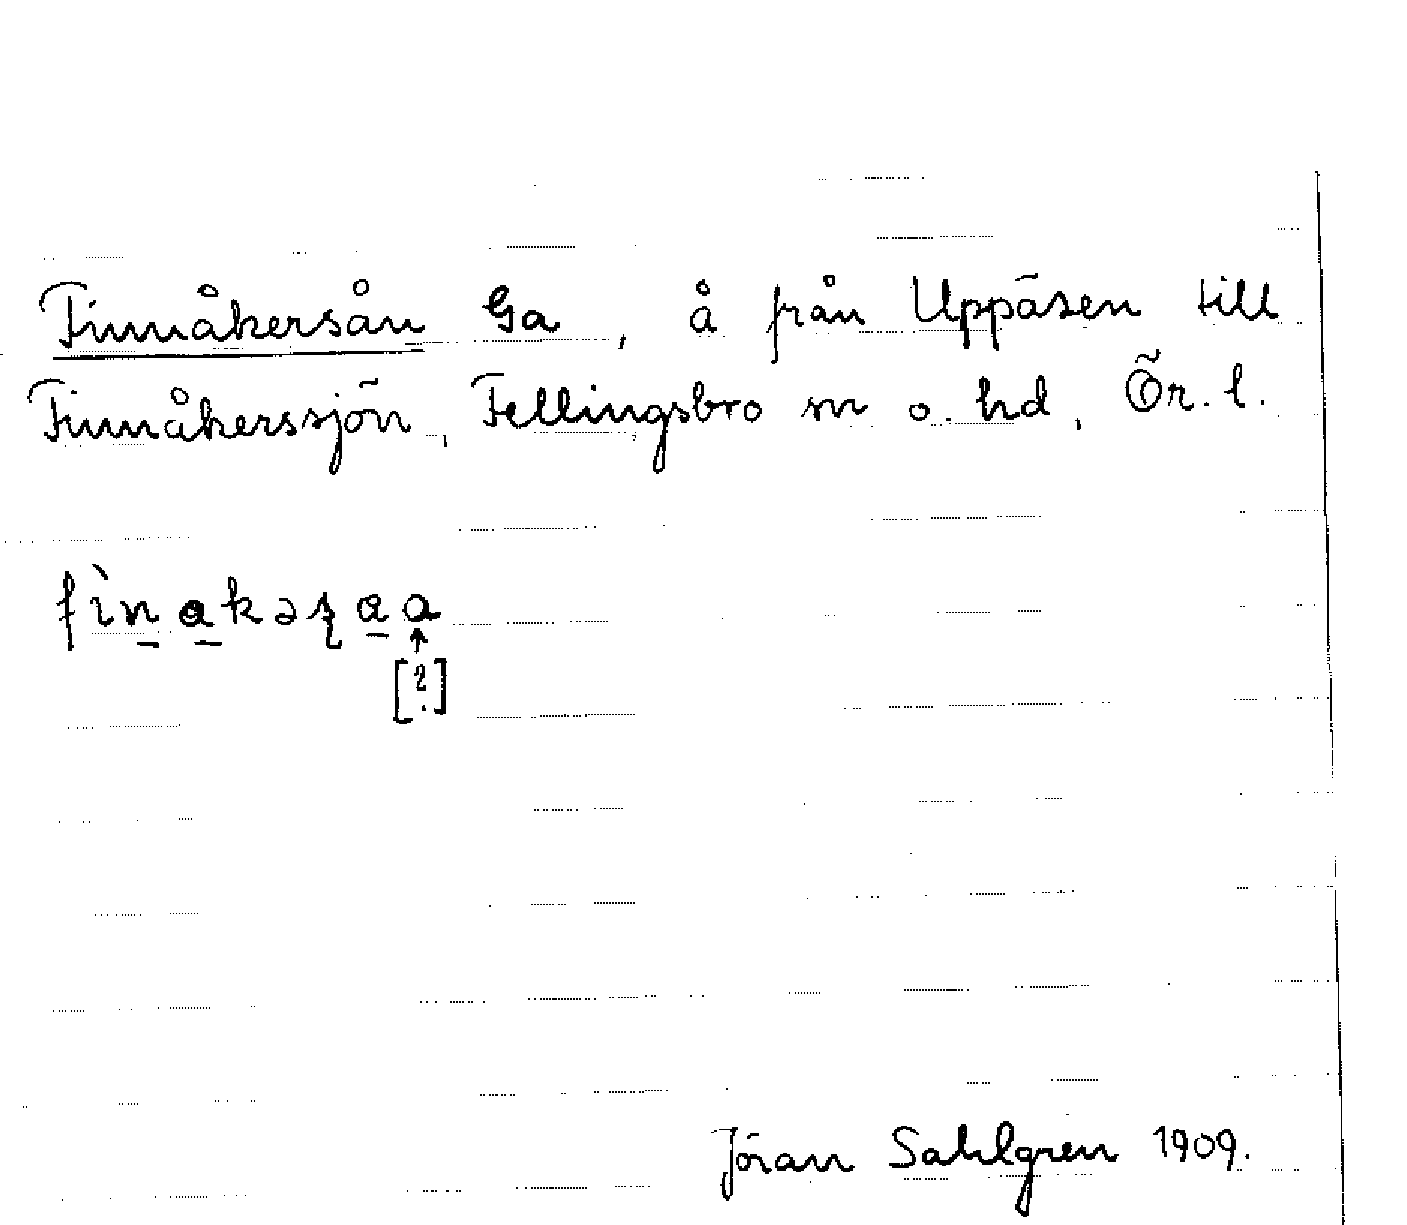 Finnåkersån Ga, å från Uppäsen till
Finnåkerssjön, Fellingsbro sn o. hd, Ör. l.
[?]
Jöran Sahlgren 1909.